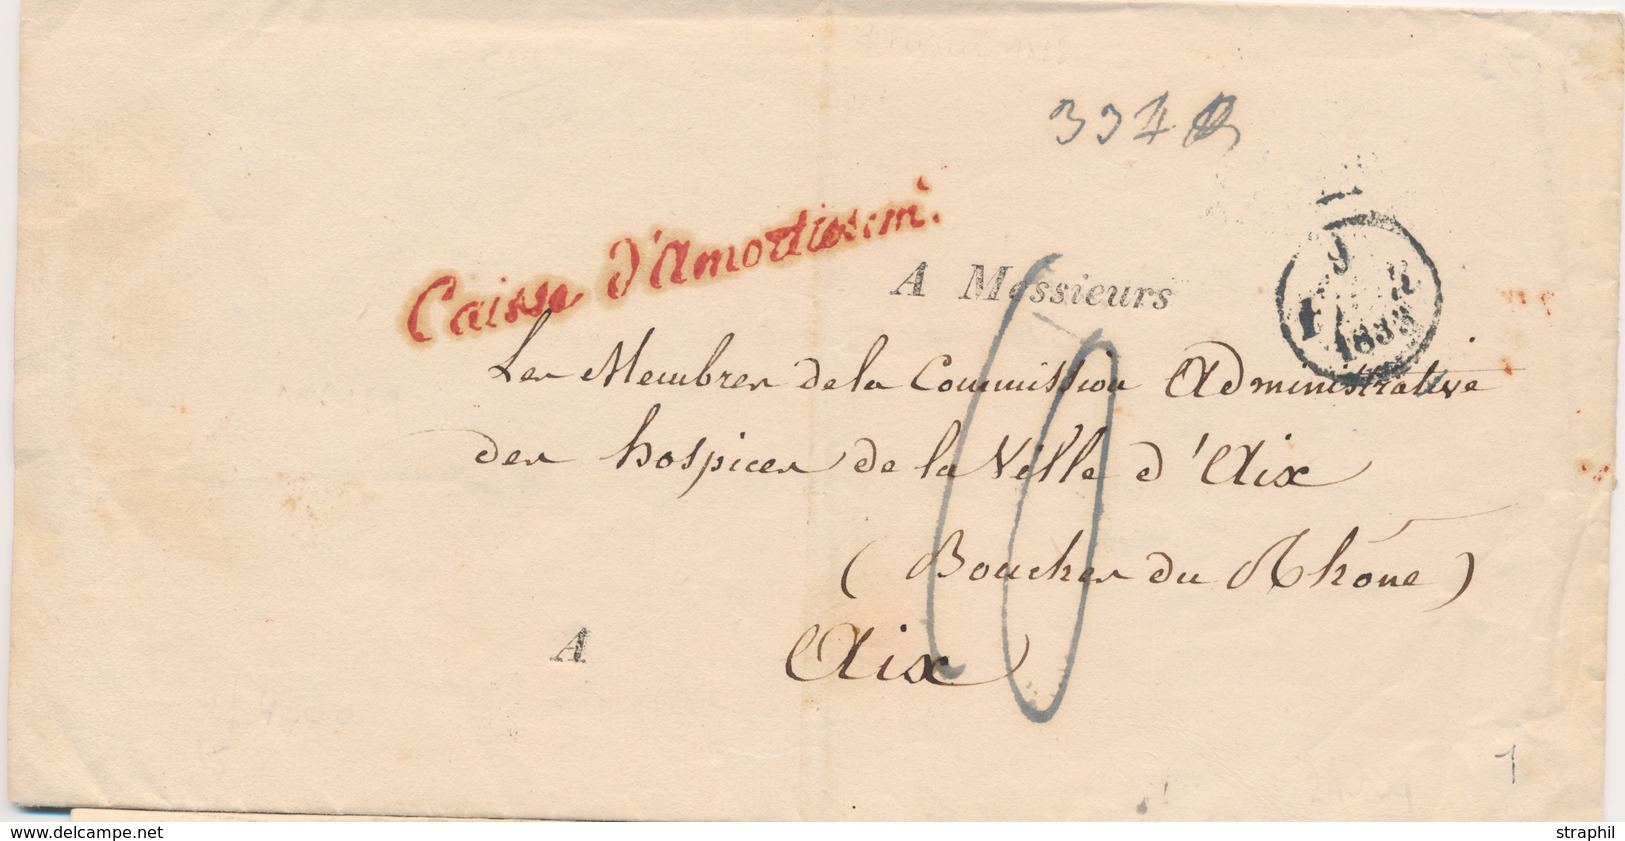 Caisse d'Amortissem.t
A Messieurs
9
1833
Les Membres de la Commission Administrative
des hospices de la Ville d'Aix
(Bouches du Rhône)
A Aix
1
www.delcampe.net
straphil